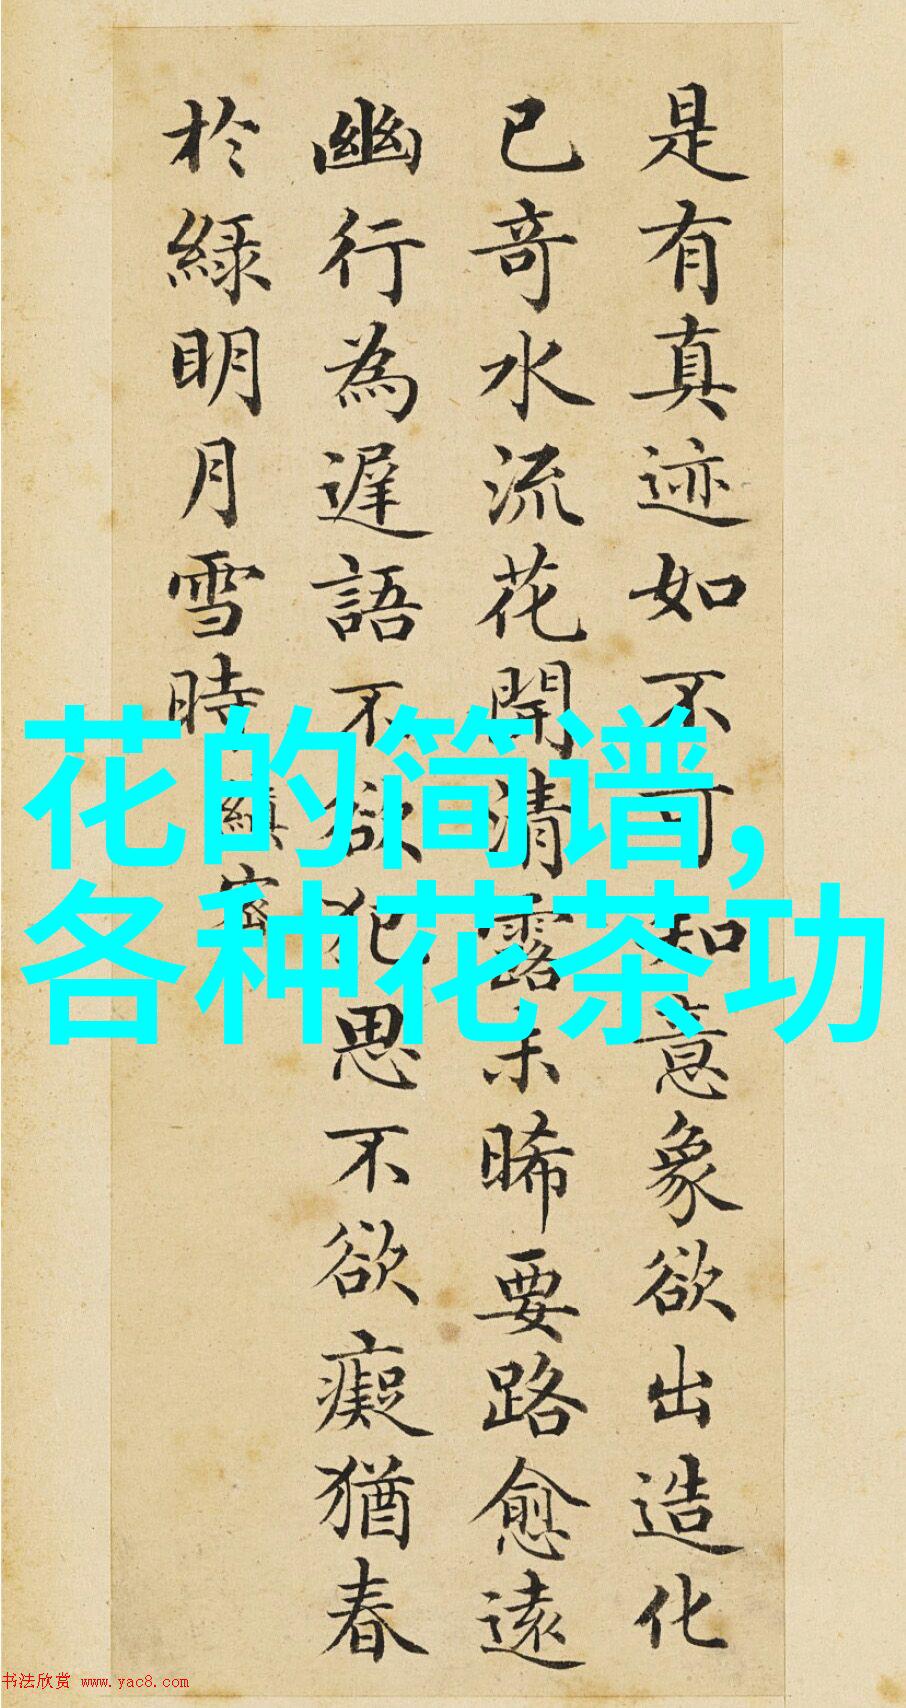 是有真迹如不可知意象欲出造化
已奇水流花開清露未晞要路愈遠
幽行為遲語不欲犯思不欲癡猶春
於綠明月雪時
縝密
花的简谱,
各种花茶功
书法欣赏 www.yac8.com